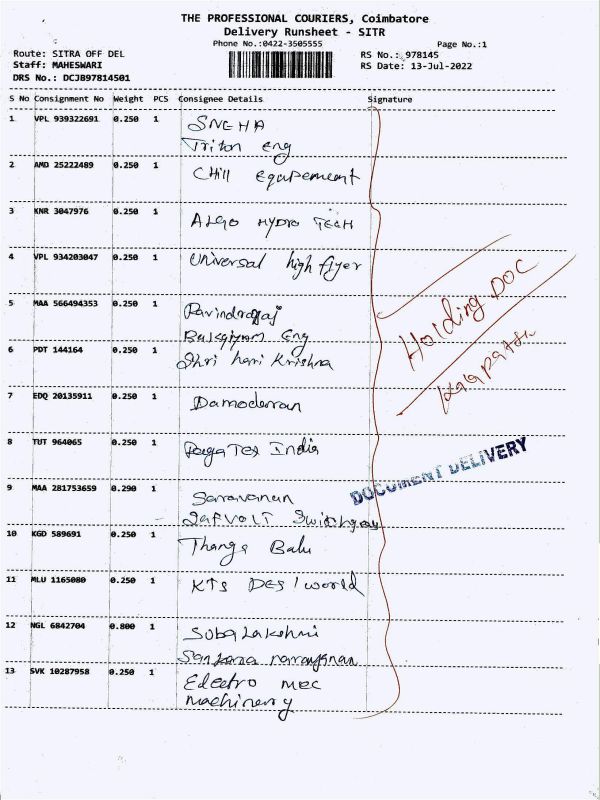 THE PROFESSIONAL COURIERS, Coimbatore
Delivery Runsheet - SITR
Phone No.:0422-3505555
Page No.:1
Route: SITRA OFF DEL
RS No.: 978145
Staff: MAHESWARI
RS Date: 13-Jul-2022
DRS No.: DCJB97814501
S No Consignment No Weight PCS Consignee Details Signature
1 VPL 939322691 0.250 1 SNEHA
Triton eng
2 AMD 25222489 0.250 1 Chill equipement
3 KNR 3047976 0.250 1 ALGO HYDRO TECH
4 VPL 934203047 0.250 1 Universal high flyer
5 MAA 566494353 0.250 1 Ravindraraj
Eng
6 PDT 144164 0.250 1 Shri hari Krishna
7 EDQ 20135911 0.250 1 Damoderran
8 TUT 964065 0.250 1 Tex India
9 MAA 281753659 0.290 1 Saravanan
10 KGD 589691 0.250 1 Thanga Balu
11 MLU 1165080 0.250 1 KTS world
12 NGL 6842704 0.800 1 Suba Lakshmi
Sankara narrayanan
13 SVK 10287958 0.250 1 Electro mec
machinerry
Holding DOC
DOCUMENT DELIVERY